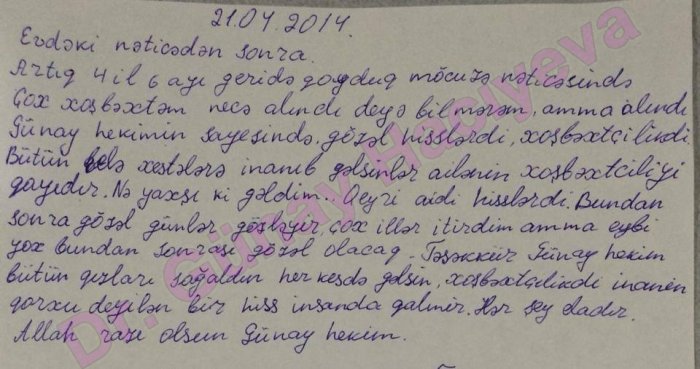 21.04.2014.
Evdəki nəticədən sonra.
Artıq 4 il 6 ayı geridə qoyduq möcüzə nəticəsində
Çox xoşbəxtəm necə alındı deyə bilmərəm, amma alındı
Günay hekimin sayesində. gözəl hisslərdi, xoşbəxtçilikdi.
Bütün belə xestələrə inanıb gəlsinlər ailənin xoşbəxtciliyi
qayıdır. Nə yaxşı ki gəldim.. Qeyri aidi hisslərdi. Bundan
sonra gözəl günlər gözləyir çox illər itirdim amma eybi
yox bundan sonrası gözəl olacaq. Təşəkkür Günay hekim
bütün qızları sağaldın herkesdə gəlsin, xoşbəxtçilikdi inanen
qorxu deyilən bir hiss insanda qalmır. Hər şey əladır.
Allah razı olsun Günay hekim.
Dr. Günay Hacıyeva